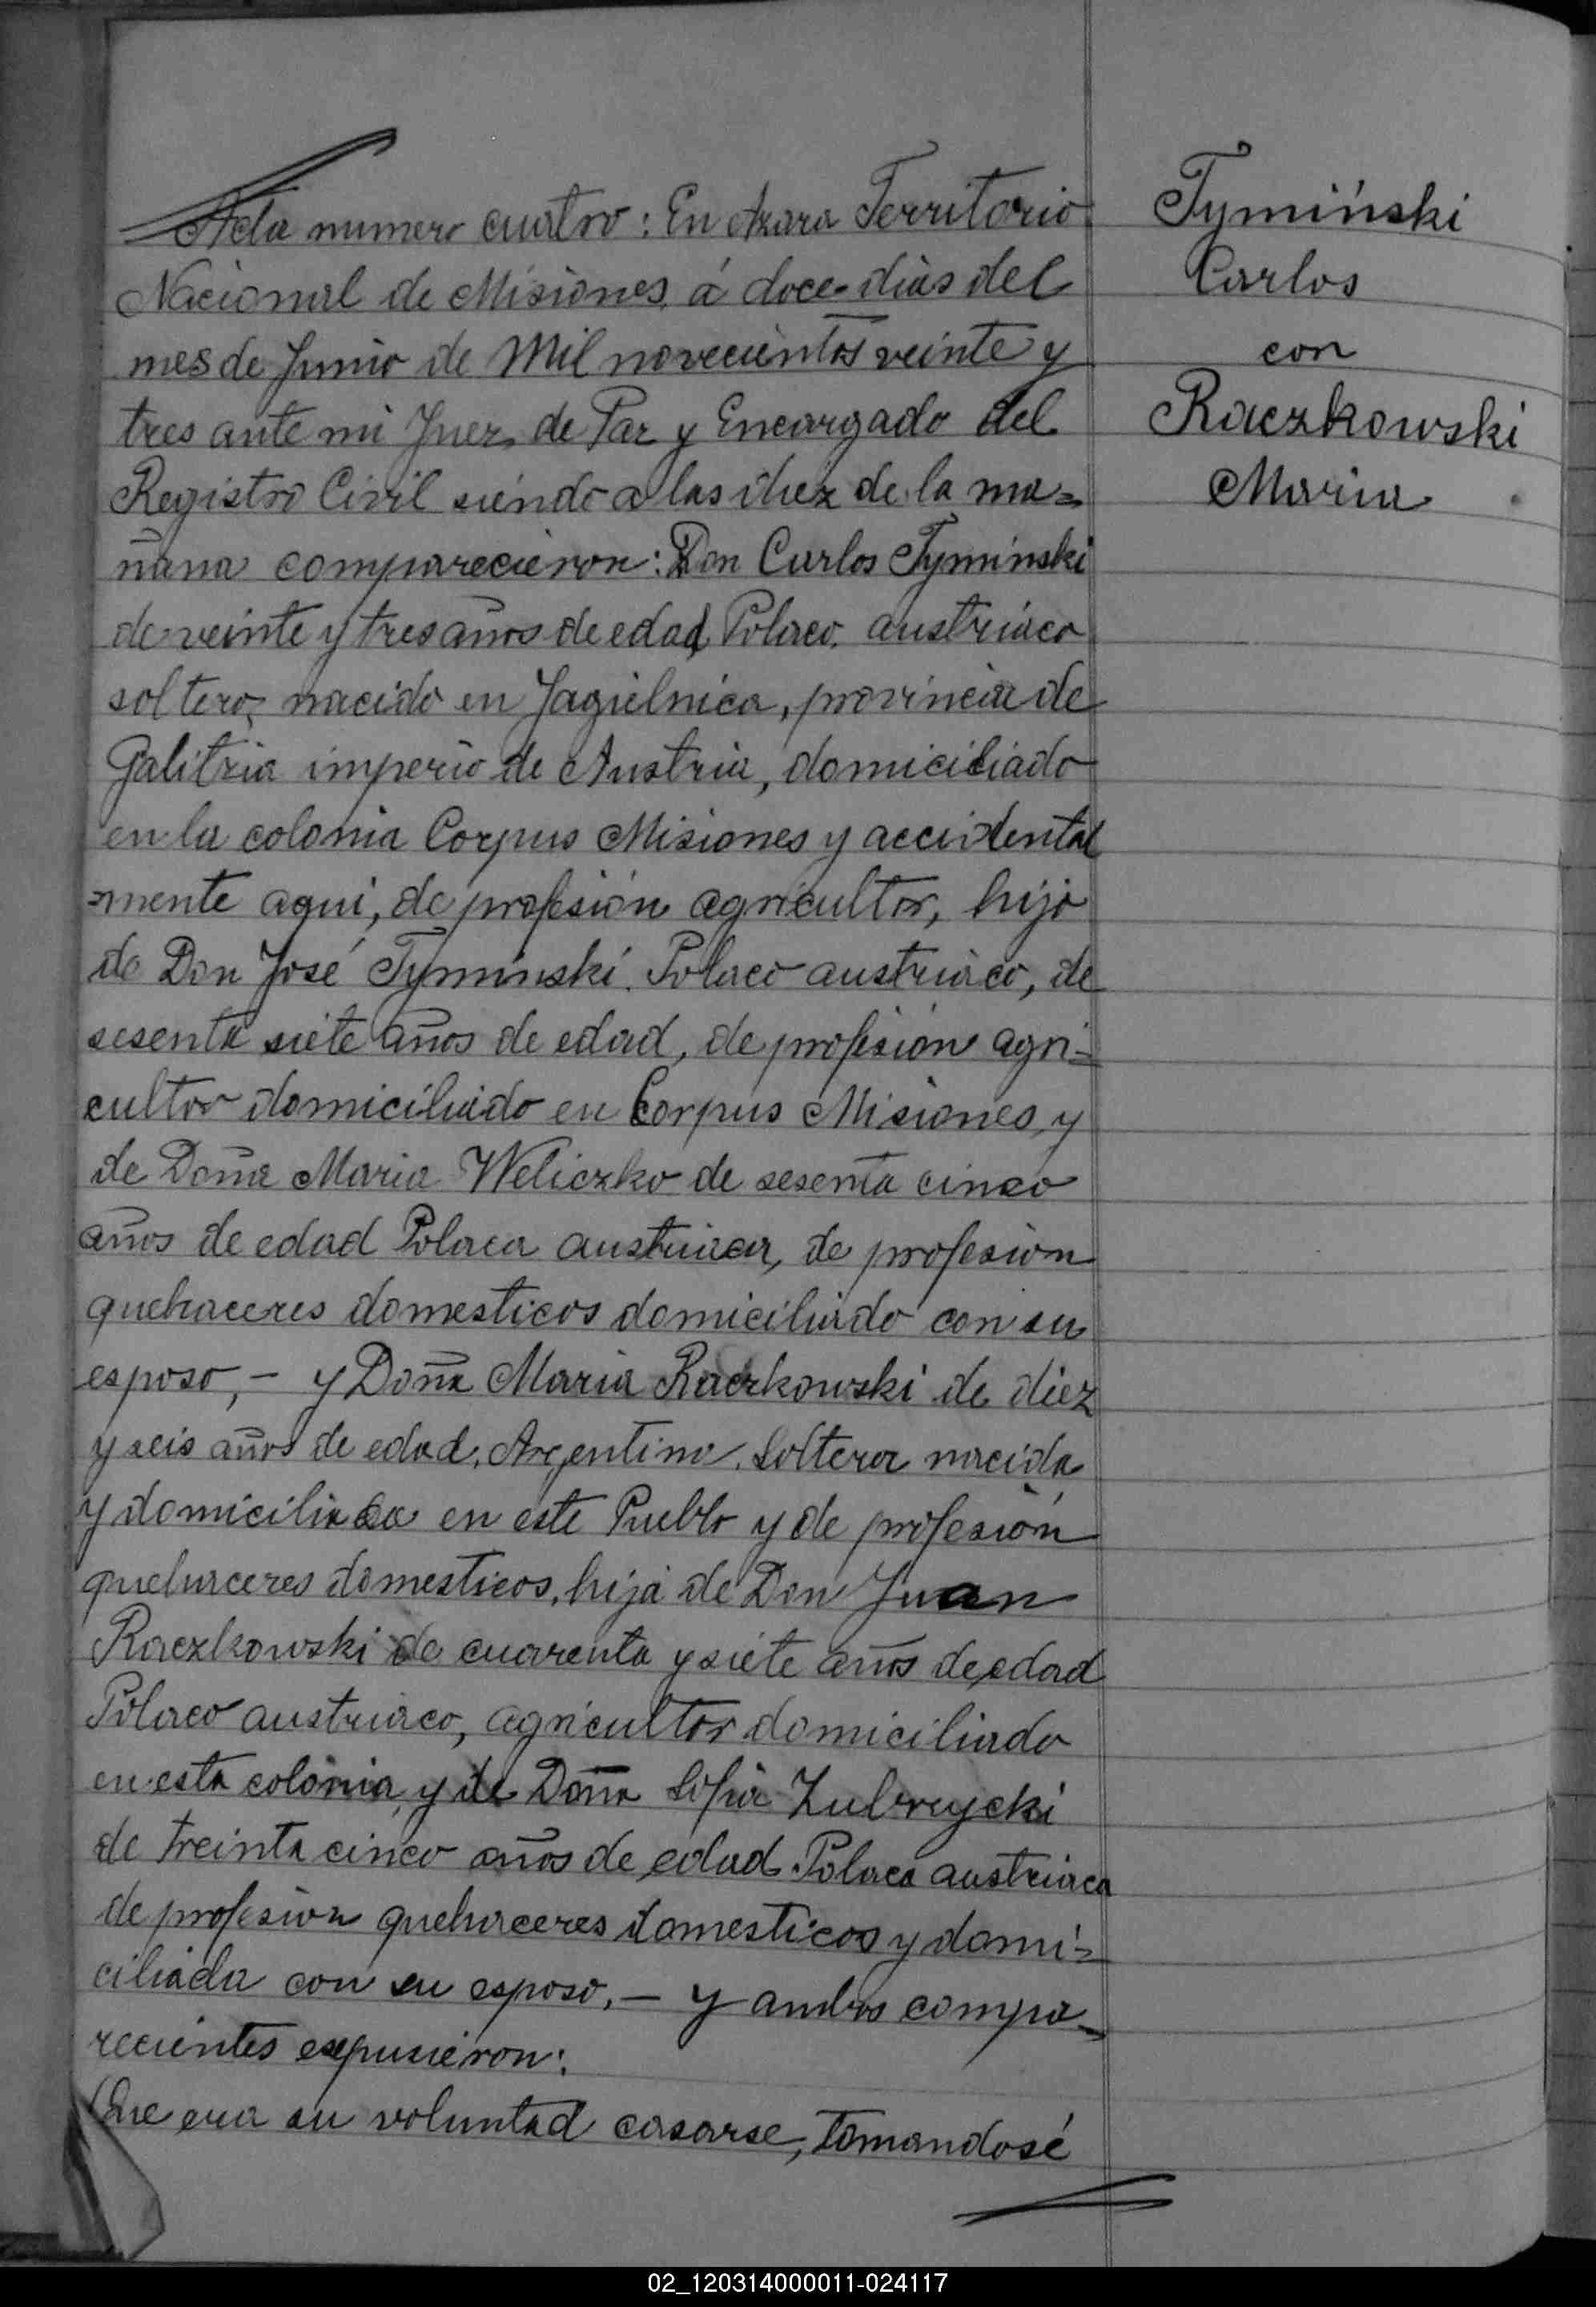 Acta numero cuatro: En Azara Territorio
Nacional de Misiones á doce dias del
mes de Junio de Mil novecientos veinte y
tres ante mi Juez de Paz y Encargado del
Registro Civil siendo a las diez de la ma=
ñana comparecieron: Don Carlos Tyminski
de veinte y tres años de edad, Polaco austriaco
soltero, nacido en Jagielnica, provincia de
Galitzia imperio de Austria, domiciliado
en la colonia Corpus Misiones y accidental
=mente aqui, de profesión agricultor, hijo
de Don José Tyminski. Polaco austriaco, de
sesenta siete años de edad, de profesión agri=
cultor domiciliado en Corpus Misiones, y
de Doña Maria Weliczko de sesenta cinco
años de edad Polaca austriaca, de profesion
quehaceres domesticos domiciliado con su
esposo, – y Doña Maria Raczkowski de diez
y seis años de edad, Argentina, soltera nacida
y domiciliada en este Pueblo y de profesion
quehaceres domesticos, hija de Don Juan
Raczkowski de cuarenta y siete años de edad
Polaco austriaco, agricultor domiciliado
en esta colonia, y de Doña Sofia Zubrycki
de treinta cinco años de edad. Polaca austriaca
de profesion quehaceres domesticos y domi=
ciliada con su esposo, – y ambos compa=
recientes expusieron:
Que era su voluntad casarse, tomandosé
Tymiński
Carlos
con
Raczkowski
Maria
02_120314000011-024117